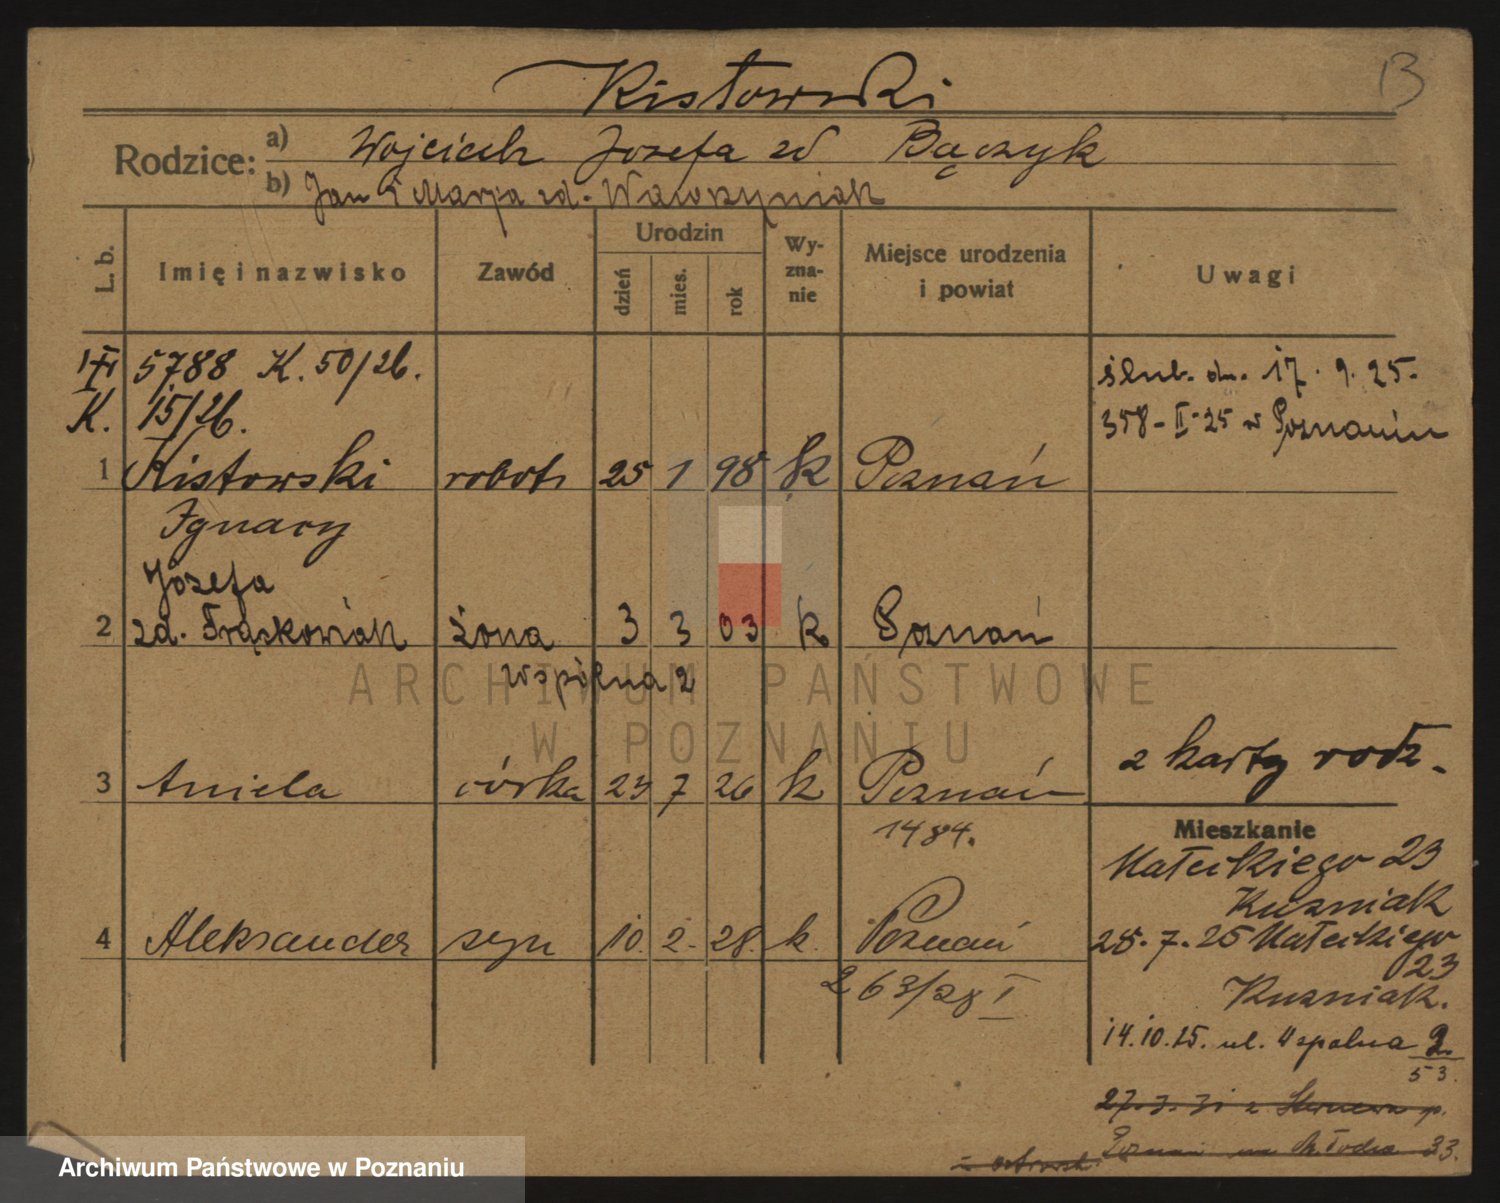 Kistowski
13
Rodzice: a) Wojciech Józefa zd Bączyk
b) Jan i Marja zd. Wawrzyniak
L. b.
Imię i nazwisko
Zawód
Urodzin
dzień
mies.
rok
Wy-
zna-
nie
Miejsce urodzenia
i powiat
Uwagi
5788 K. 50/26.
K. 15/26.
ślub. dn. 17. 9. 25.
358-II-25 w Poznaniu
1 Kistowski robotn 25 1 98 k Poznań
Ignacy
Józefa
2 zd. Frąckowiak żona 3 3 03 k Poznań
Wspólna 2
ARCHIWUM PAŃSTWOWE
W POZNANIU
2 karty rodz.
3 Aniela córka 23 7 26 k Poznań
1484.
4 Aleksander syn 10. 2. 28. k. Poznań
263/28 I
Mieszkanie
Małeckiego 23
Kuzniak
28.7.25 Małeckiego
23
Kuzniak.
14.10.25. ul. Wspolna 2
53.
27.3.31 z
Poznań 33.
Archiwum Państwowe w Poznaniu